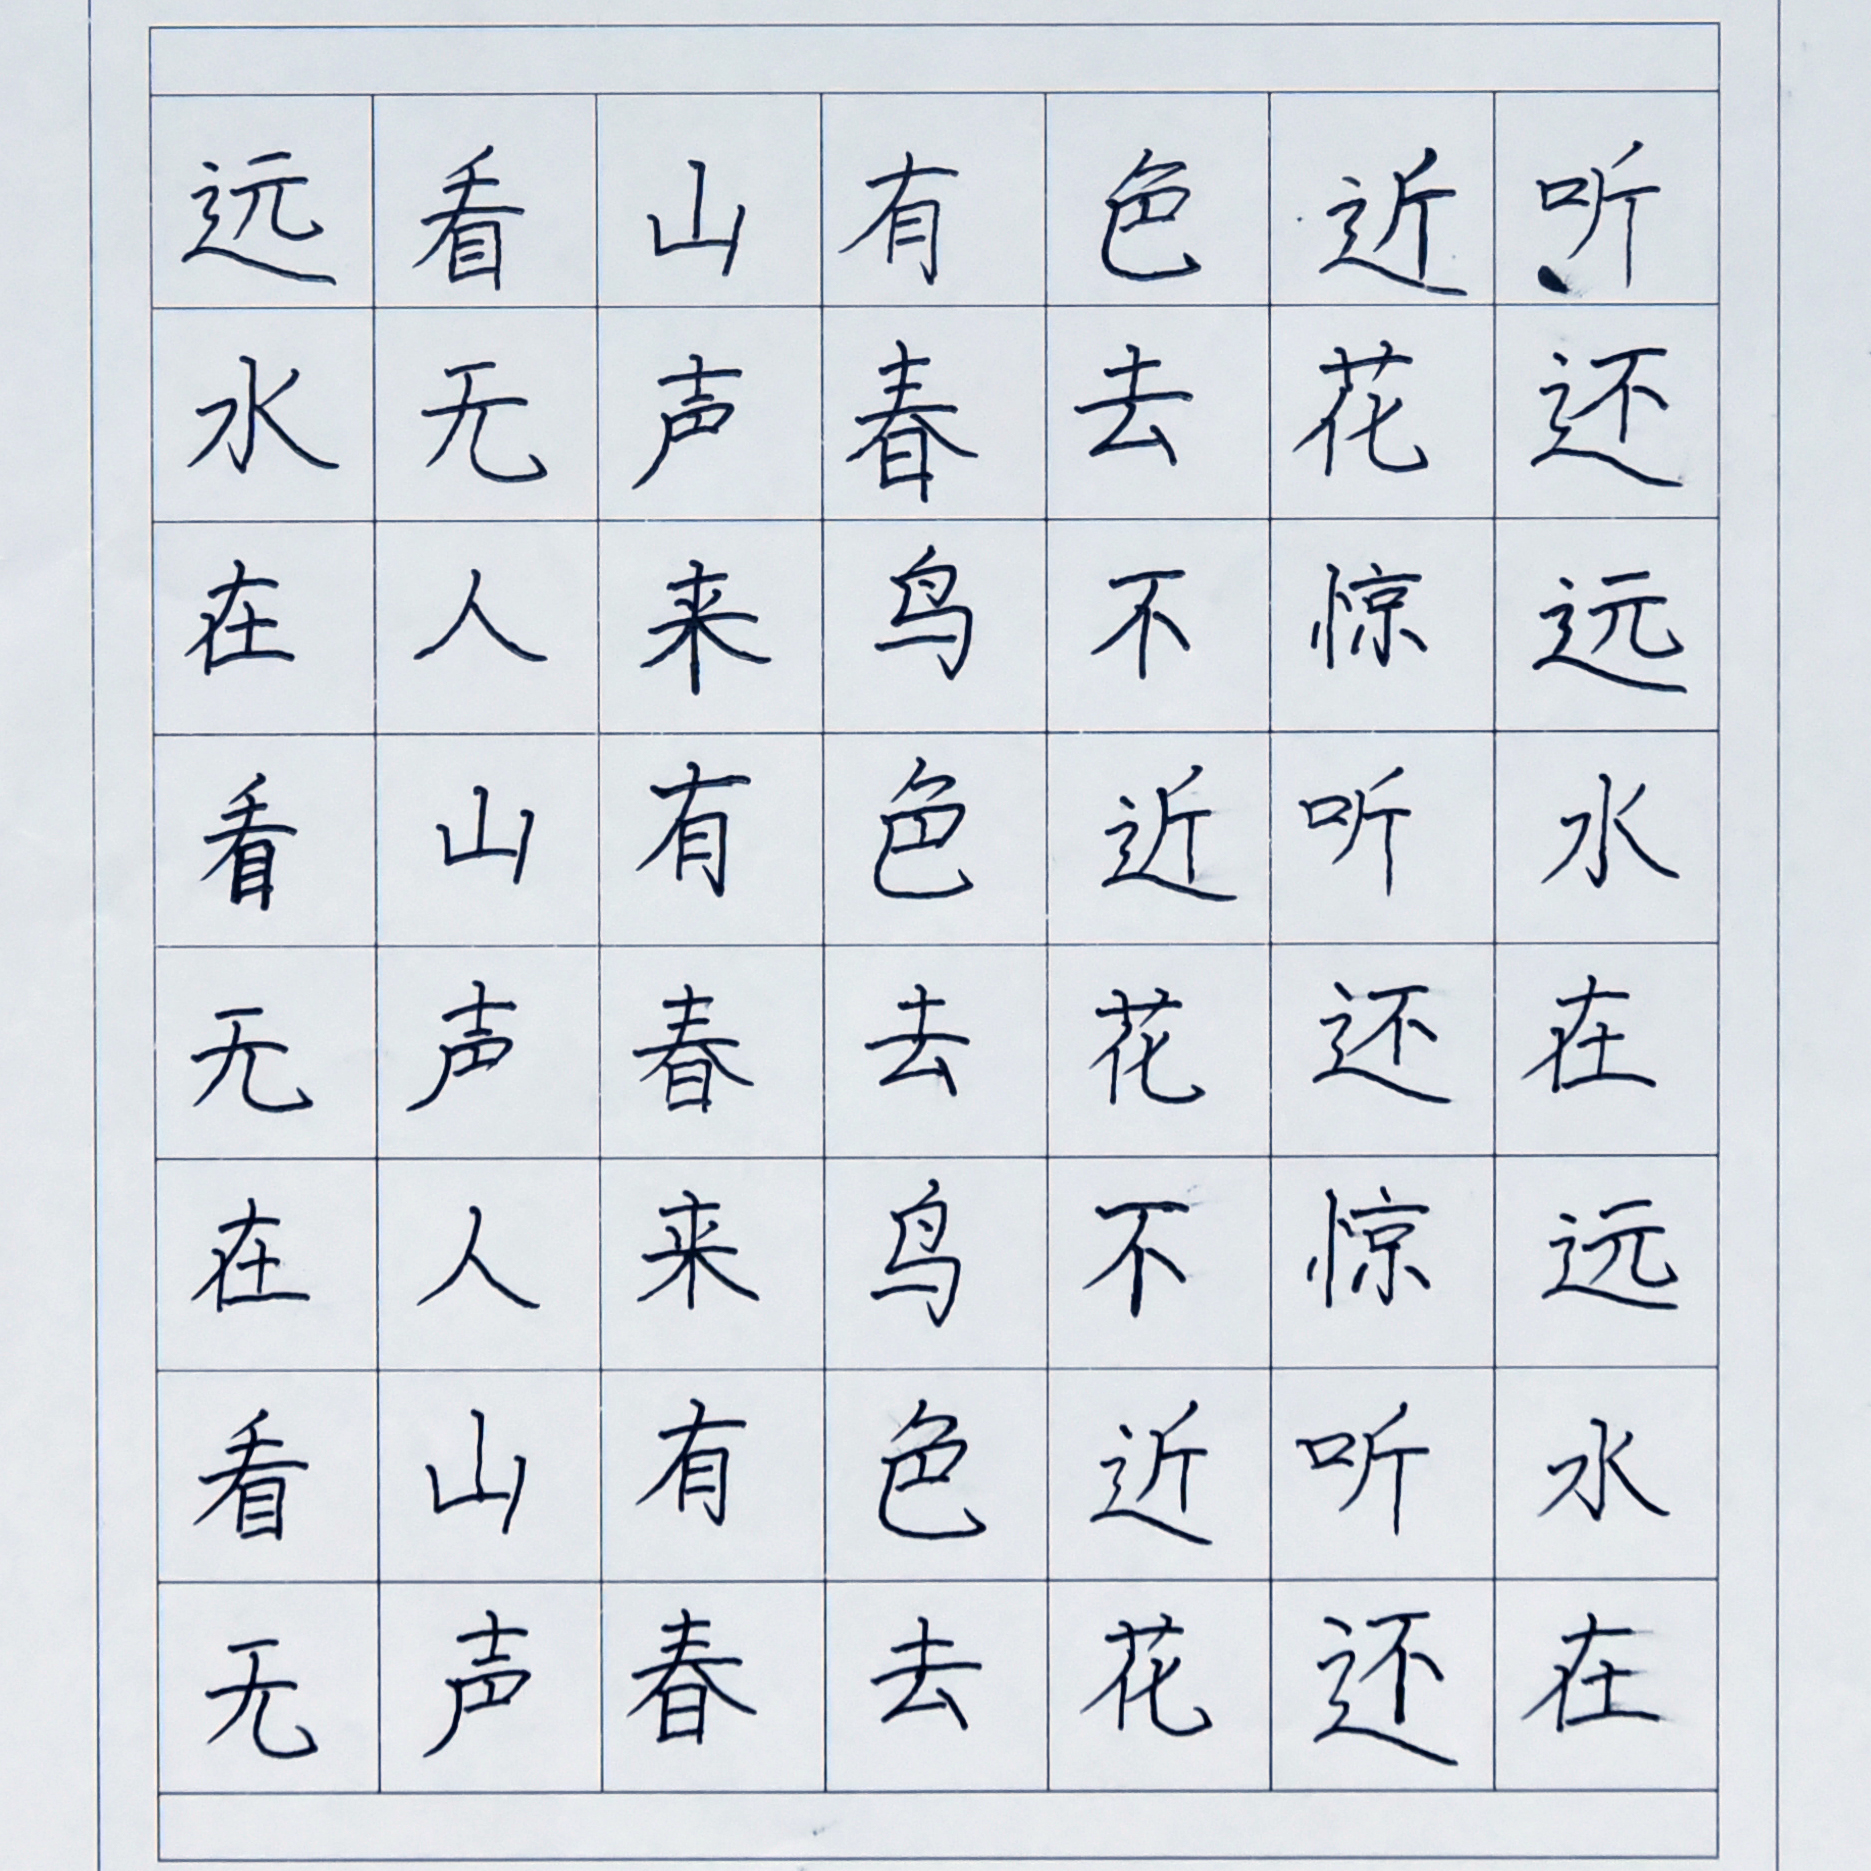 远看山有色近听
水无声春去花还
在人来鸟不惊远
看山有色近听水
无声春去花还在
在人来鸟不惊远
看山有色近听水
无声春去花还在